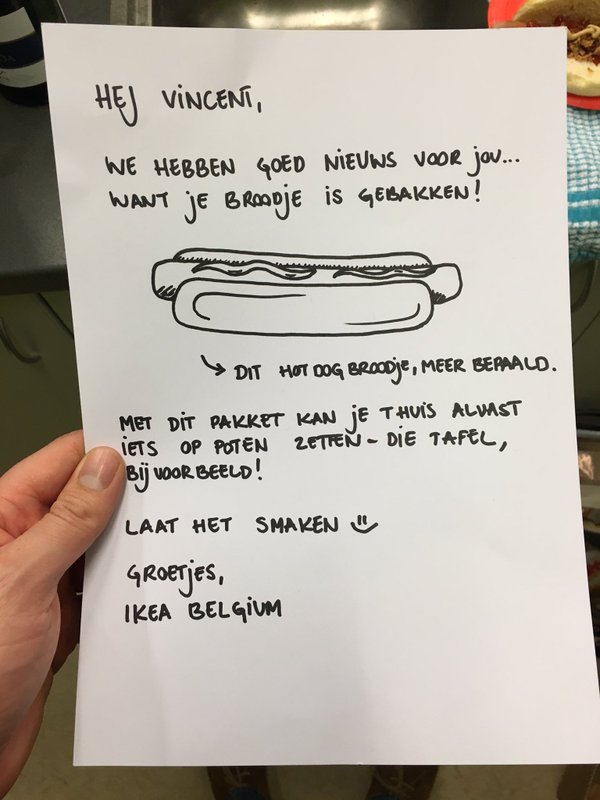 HEJ VINCENT,
WE HEBBEN GOED NIEUWS VOOR JOU...
WANT JE BROODJE IS GEBAKKEN!
↳ DIT HOT DOG BROODJE, MEER BEPAALD.
MET DIT PAKKET KAN JE THUIS ALVAST
IETS OP POTEN ZETTEN - DIE TAFEL,
BIJVOORBEELD!
LAAT HET SMAKEN :)
GROETJES,
IKEA BELGIUM